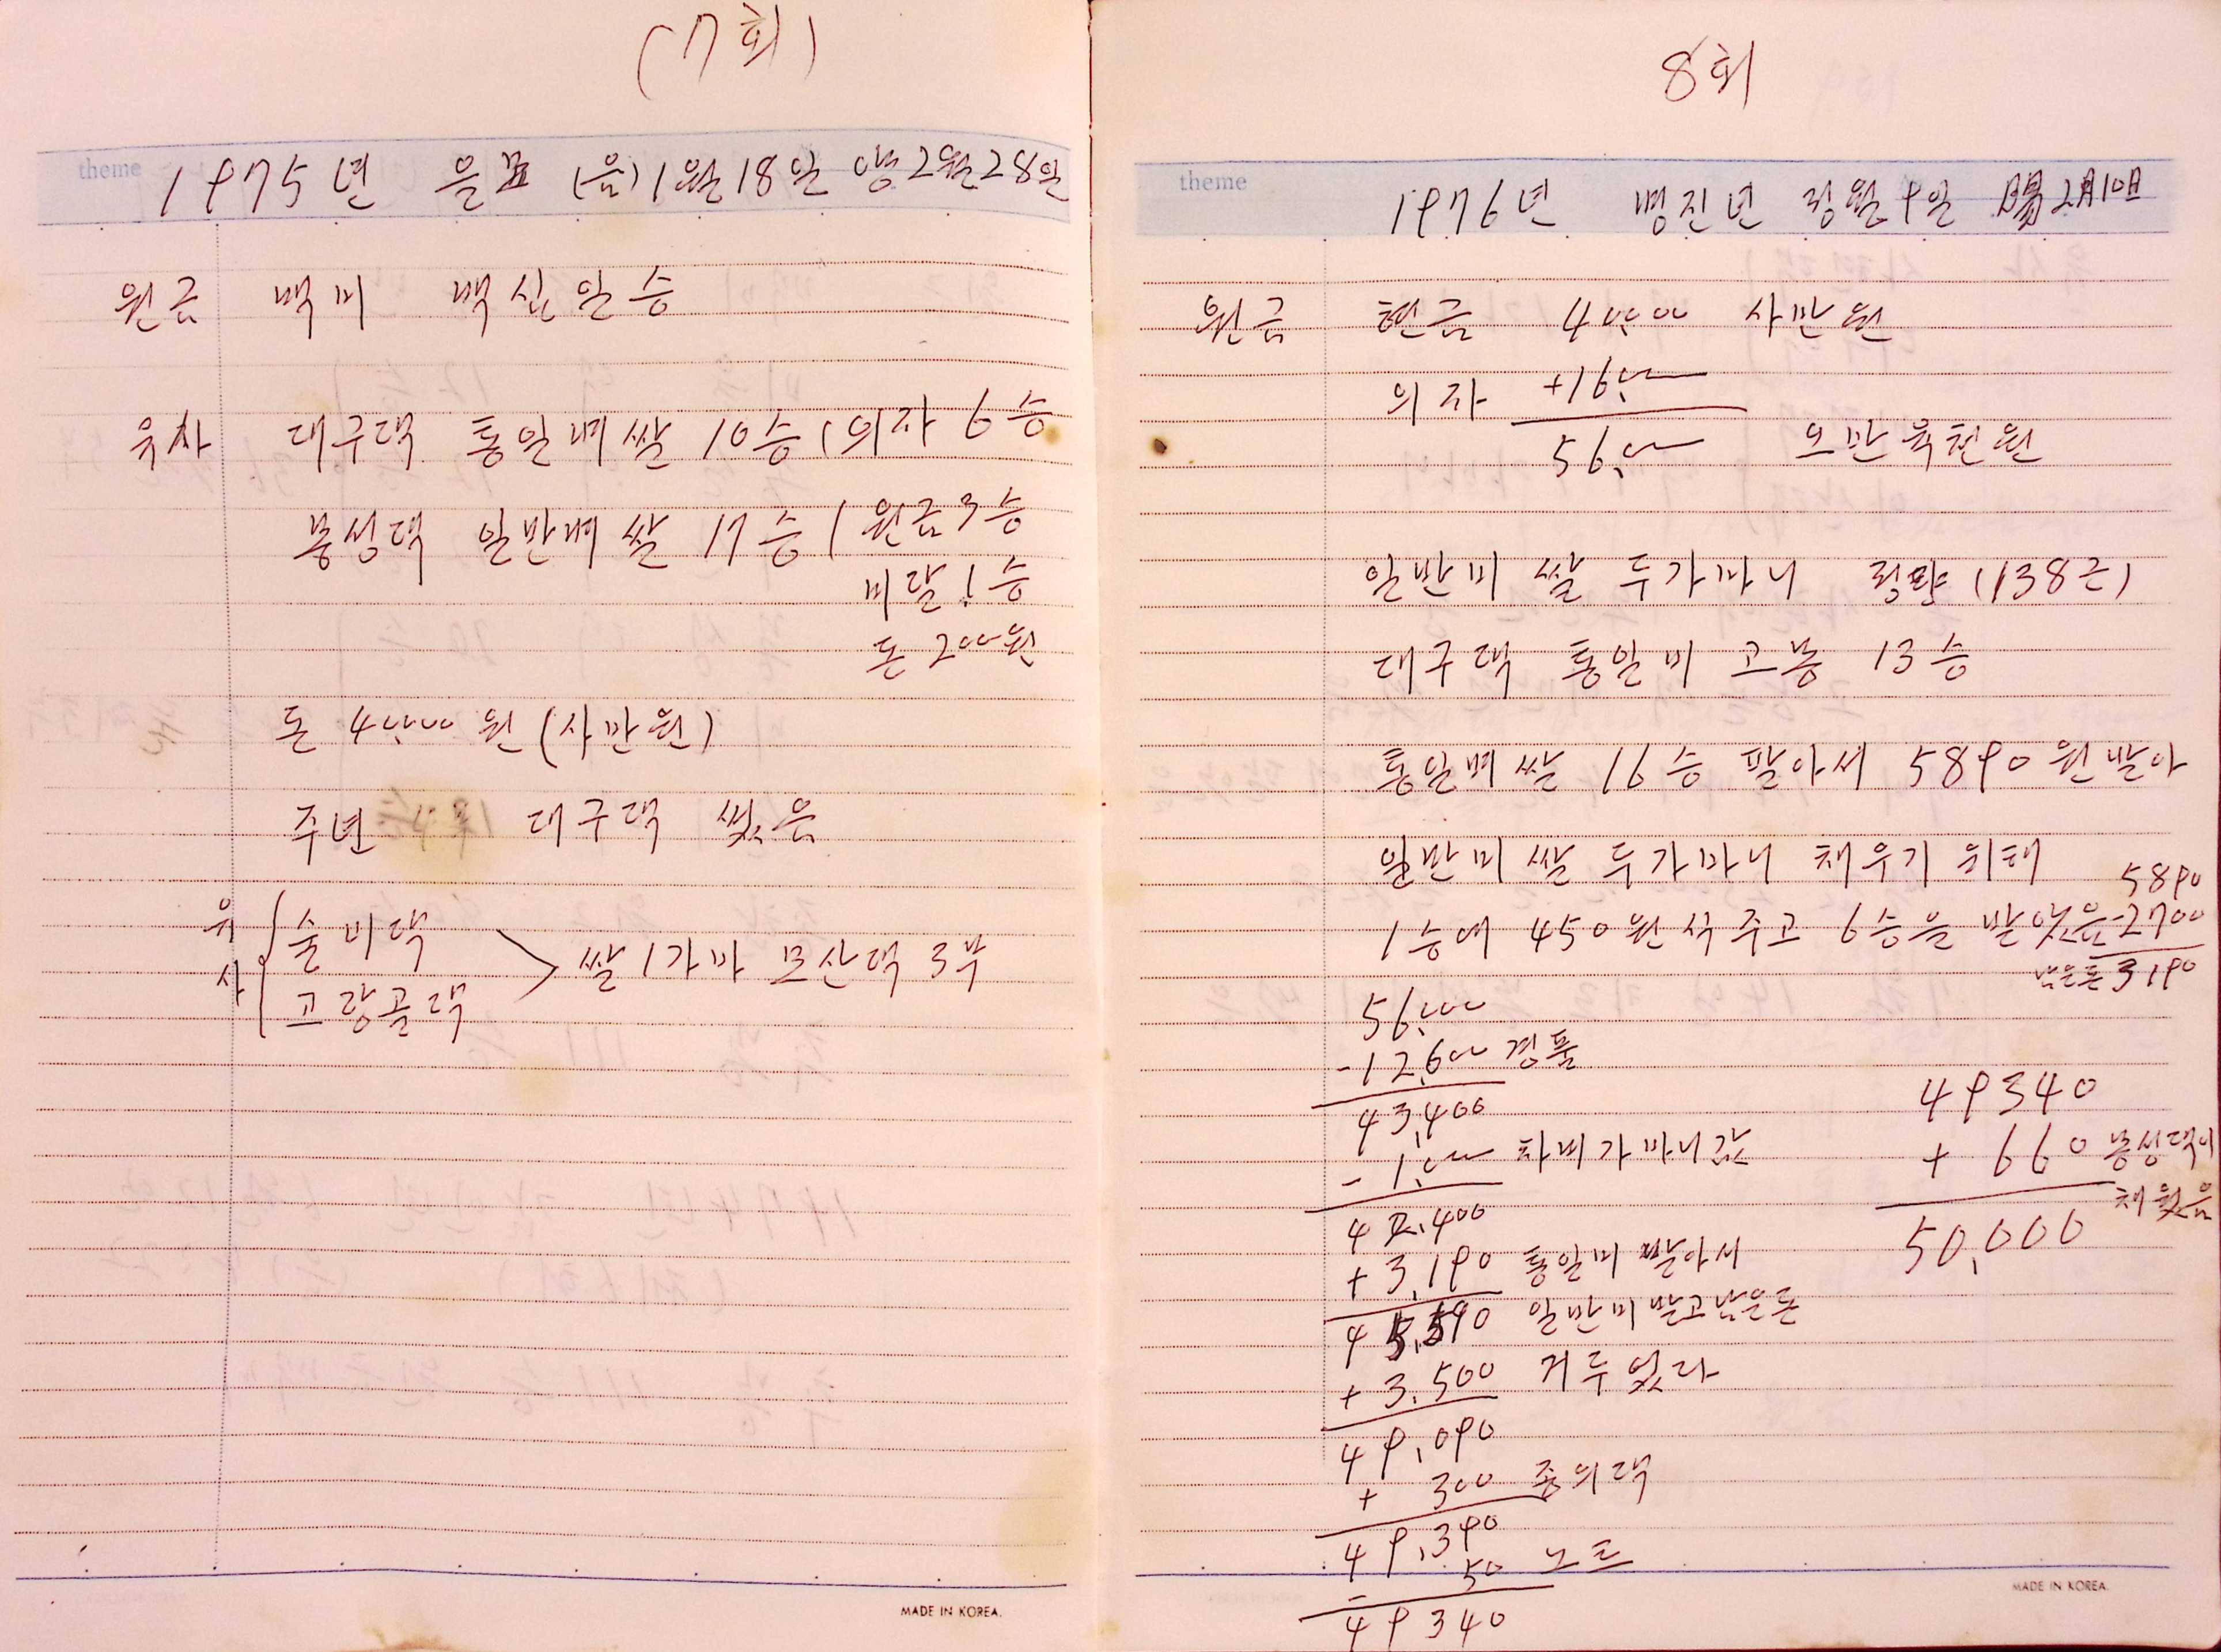 (7회)
theme
1975년 을묘 (음)1월18일 양2월28일
원금 백미 백십일승
유사 대구댁 통일배쌀 10승 (의자 6승
봉성댁 일반배쌀 17승 (원금3승
배달1승
돈 200원
돈 40,000원 (사만원)
주년 대구댁 썼음
유사 술미댁
고랑골댁
쌀1가마 모산댁 3부
MADE IN KOREA.
8회
theme
1976년 병진년 정월9일 陽2月10日
원금 현금 40,000 사만원
의자 +16,000
56,000 오만육천원
일반미 쌀 두가마니 정량 (138근)
대구댁 통일미 고봉 13승
통일배쌀 16승 팔아서 5890원 받아
일반미 쌀 두가마니 채우기 위해
5890
1승에 450원식 주고 6승을 팔았음 -2700
남은돈 3190
56,000
-12,600 경품
43,400
-1,000 차비 가마니값
42,400
+3,190 통일미 팔아서
45,590 일반미 팔고남은돈
+3,500 거두었다
49,090
+300 중의댁
49,390
-50 노트
49340
49340
+660 봉성댁이
채웠음
50,000
MADE IN KOREA.